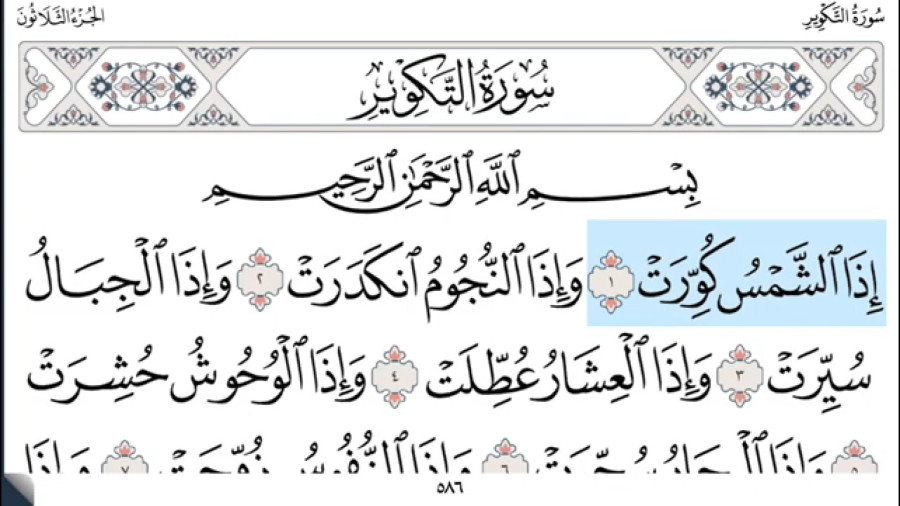 سُورَةُ التَّكْوِيرِ
الجُزْءُ الثَّلَاثُونَ
سُورَةُ التَّكْوِيرِ
بِسْمِ ٱللَّهِ ٱلرَّحْمَٰنِ ٱلرَّحِيمِ
إِذَا ٱلشَّمْسُ كُوِّرَتْ ١ وَإِذَا ٱلنُّجُومُ ٱنكَدَرَتْ ٢ وَإِذَا ٱلْجِبَالُ
سُيِّرَتْ ٣ وَإِذَا ٱلْعِشَارُ عُطِّلَتْ ٤ وَإِذَا ٱلْوُحُوشُ حُشِرَتْ
٥ وَإِذَا ٱلْبِحَارُ سُجِّرَتْ ٦ وَإِذَا ٱلنُّفُوسُ زُوِّجَتْ ٧ وَإِذَا
٥٨٦